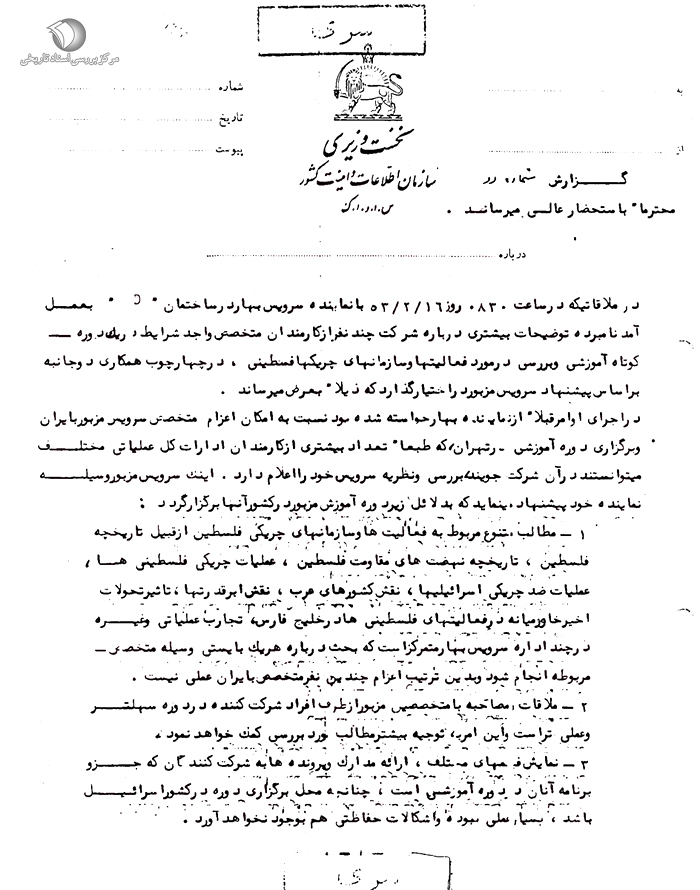 سری
مرکز بررسی اسناد تاریخی
به
شماره
تاریخ
از
پیوست
نخست وزیری
سازمان اطلاعات و امنیت کشور
س.ا.و.ا.ک
گزارش
محترماً باستحضار عالی میرساند .
درباره
در ملاقاتیکه در ساعت ۰۸۳۰ روز ۵۳/۲/۱۶ با نماینده سرویس بهار در ساختمان " " بعمل
آمد نامبرده توضیحات بیشتری درباره شرکت چند نفر از کارمندان متخصص واجد شرایط در یک دوره ـ
کوتاه آموزشی و بررسی در مورد فعالیتها و سازمانهای چریکها فلسطینی ، در چهارچوب همکاری دو جانبه
بر اساس پیشنهاد سرویس مزبور در اختیار گذارد که ذیلاً بعرض میرساند .
در اجرای اوامر قبلاً از نماینده بهار خواسته شده بود نسبت به امکان اعزام متخصص سرویس مزبور بایران
و برگزاری دوره آموزشی در تهران، که طبعاً تعداد بیشتری از کارمندان ادارات کل عملیاتی مختلف
میتوانستند در آن شرکت جویند، بررسی و نظریه سرویس خود را اعلام دارد . اینک سرویس مزبور وسیله
نماینده خود پیشنهاد مینماید که بدلائل زیر دوره آموزش مزبور در کشور آنها برگزار گردد :
۱ ـ مطالب متنوع مربوط به فعالیت ها و سازمانهای چریکی فلسطین از قبیل تاریخچه
فلسطین ، تاریخچه نهضت های مقاومت فلسطین ، عملیات چریکی فلسطینی ها ،
عملیات ضد چریکی اسرائیلیها ، نقش کشورهای عرب ، نقش ابرقدرتها ، تاثیر تحولات
اخیر خاورمیانه در فعالیتهای فلسطینی ها در خلیج فارس، تجارب عملیاتی و غیره
در چند اداره سرویس بهار متمرکز است که بحث درباره هریک بایستی وسیله متخصص ـ
مربوطه انجام شود و بدین ترتیب اعزام چندین نفر متخصص بایران عملی نیست .
۲ ـ ملاقات و مصاحبه با متخصصین مزبور از طرف افراد شرکت کننده در دوره سهلتر
و عملی تر است و این امر به توجیه بیشتر مطالب مورد بررسی کمک خواهد نمود .
۳ ـ نمایش فیلمهای مختلف ، ارائه مدارک و پرونده ها به شرکت کنندگان که جزو
برنامه آنان در دوره آموزشی است ، چنانچه محل برگزاری دوره در کشور اسرائیل
باشد ، بسیار عملی بوده و اشکالات حفاظتی هم بوجود نخواهد آورد .